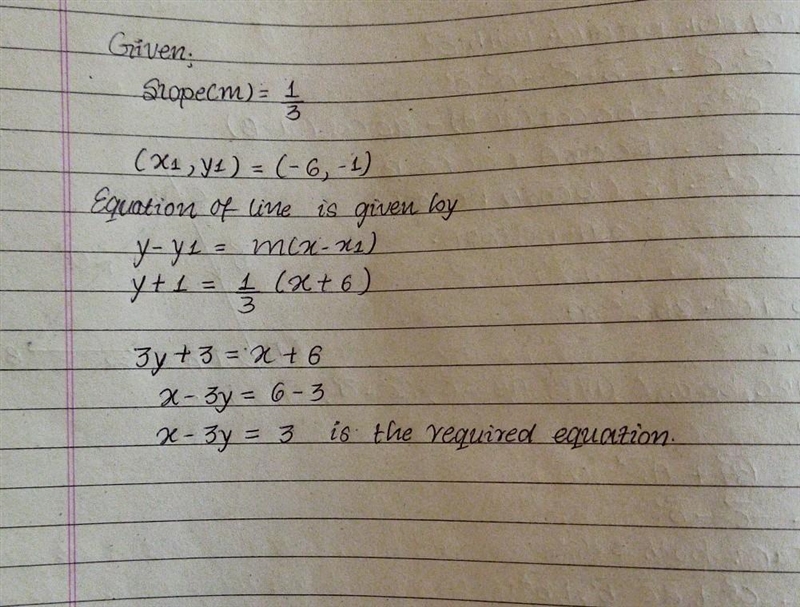 Given;
Slope(m) = 1/3
(x1, y1) = (-6, -1)
Equation of line is given by
y - y1 = m(x - x1)
y + 1 = 1/3 (x + 6)
3y + 3 = x + 6
x - 3y = 6 - 3
x - 3y = 3 is the required equation.